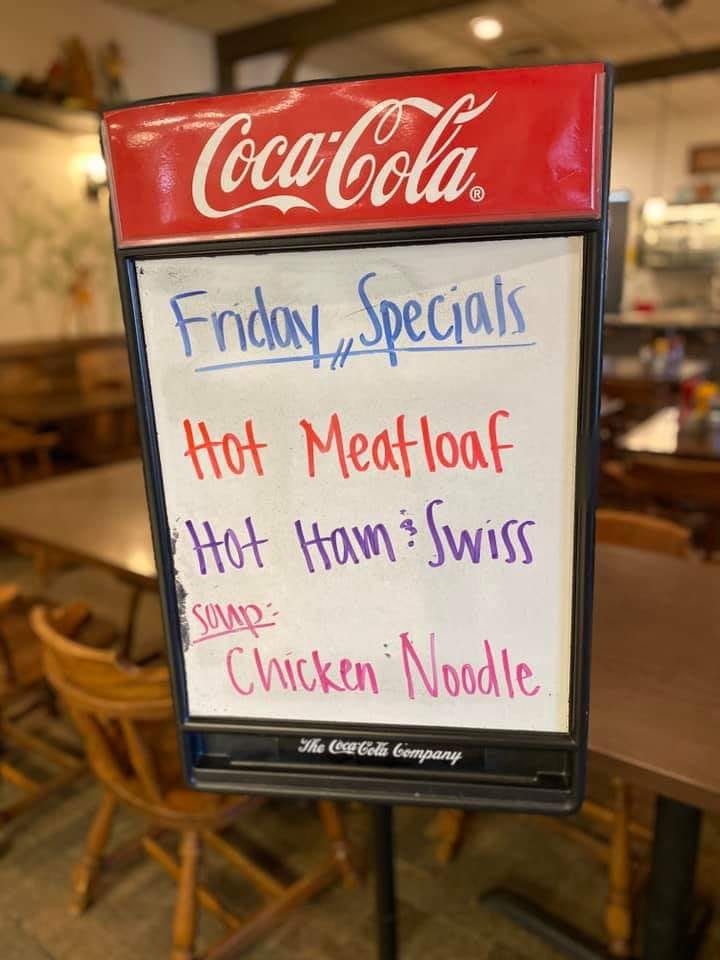 Coca-Cola®
Friday Specials
Hot Meatloaf
Hot Ham & Swiss
Soup:
Chicken Noodle
The Coca-Cola Company